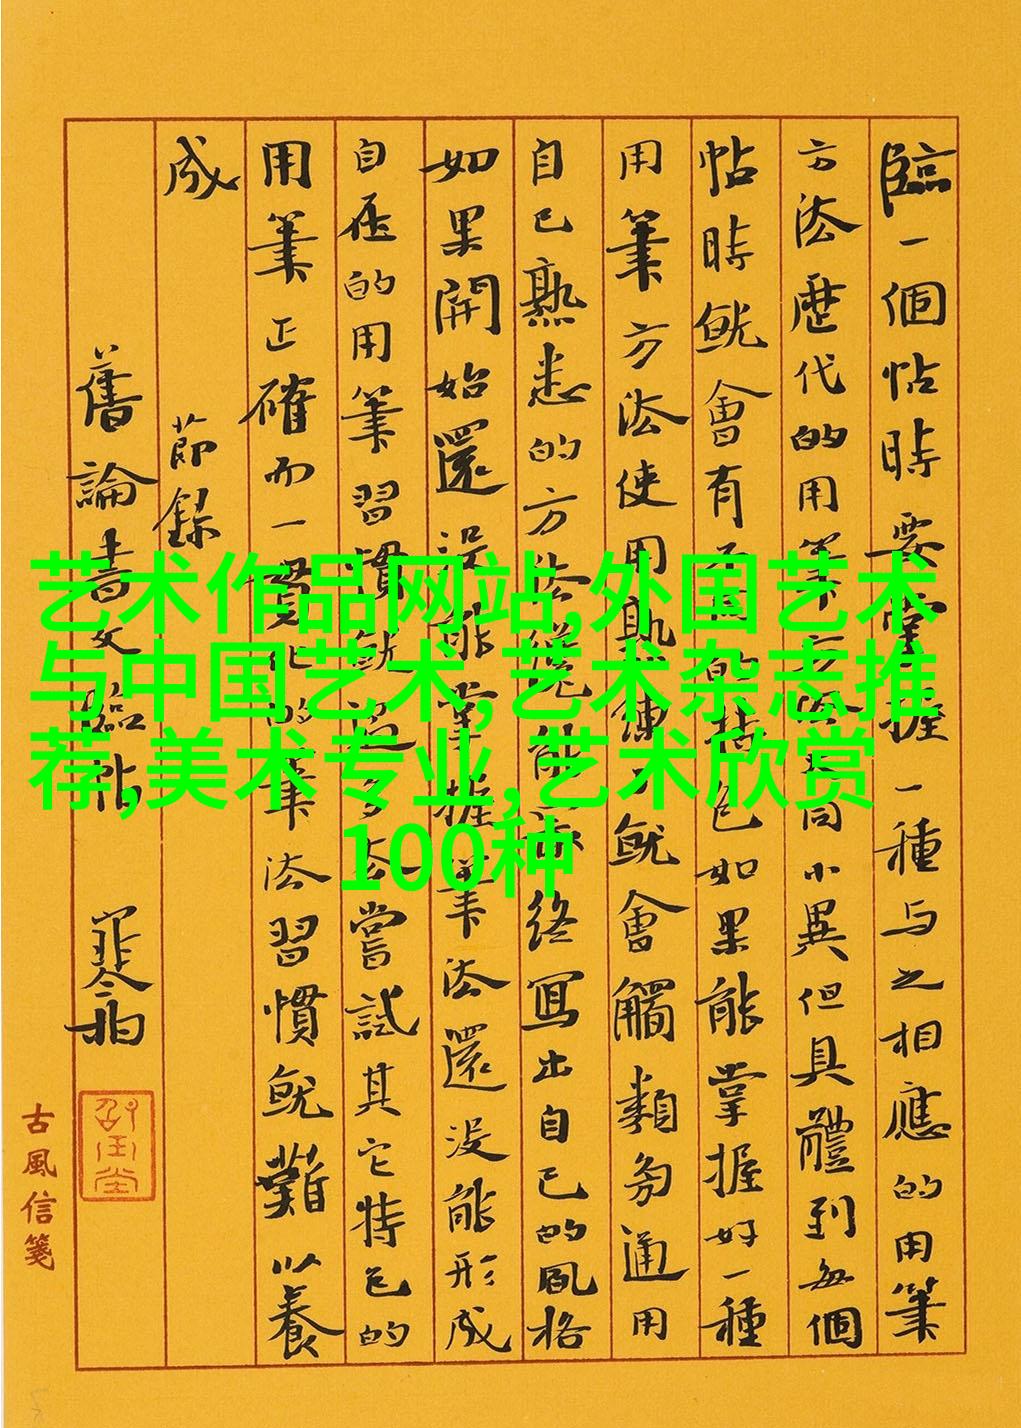 臨一個帖時要掌握一種与之相應的用筆
方法歷代的用筆方法大同小異但具體到每個
帖時就會有不同的特色如果能掌握好一種
用筆方法使用熟練了就會觸類旁通用
自己熟悉的方法能終寫出自己的風格
如果開始還沒能掌握筆法還沒能形成
自在的用筆習慣就過多去嘗試其它特色的
用筆正確而一貫化的筆法習慣就難以養
成
節錄
舊論書文臨帖
古風信箋
艺术作品网站,外国艺术
与中国艺术,艺术杂志推
荐,美术专业,艺术欣赏
100种